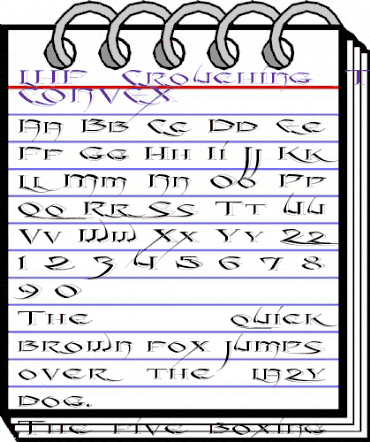 LHF Crouching T
CONVEX
Aa Bb Cc Dd Ee
Ff Gg Hh Ii Jj Kk
Ll Mm Nn Oo Pp
Qq Rr Ss Tt Uu
Vv Ww Xx Yy Zz
1 2 3 4 5 6 7 8
9 0
The quick
brown fox jumps
over the lazy
dog.
The five boxing